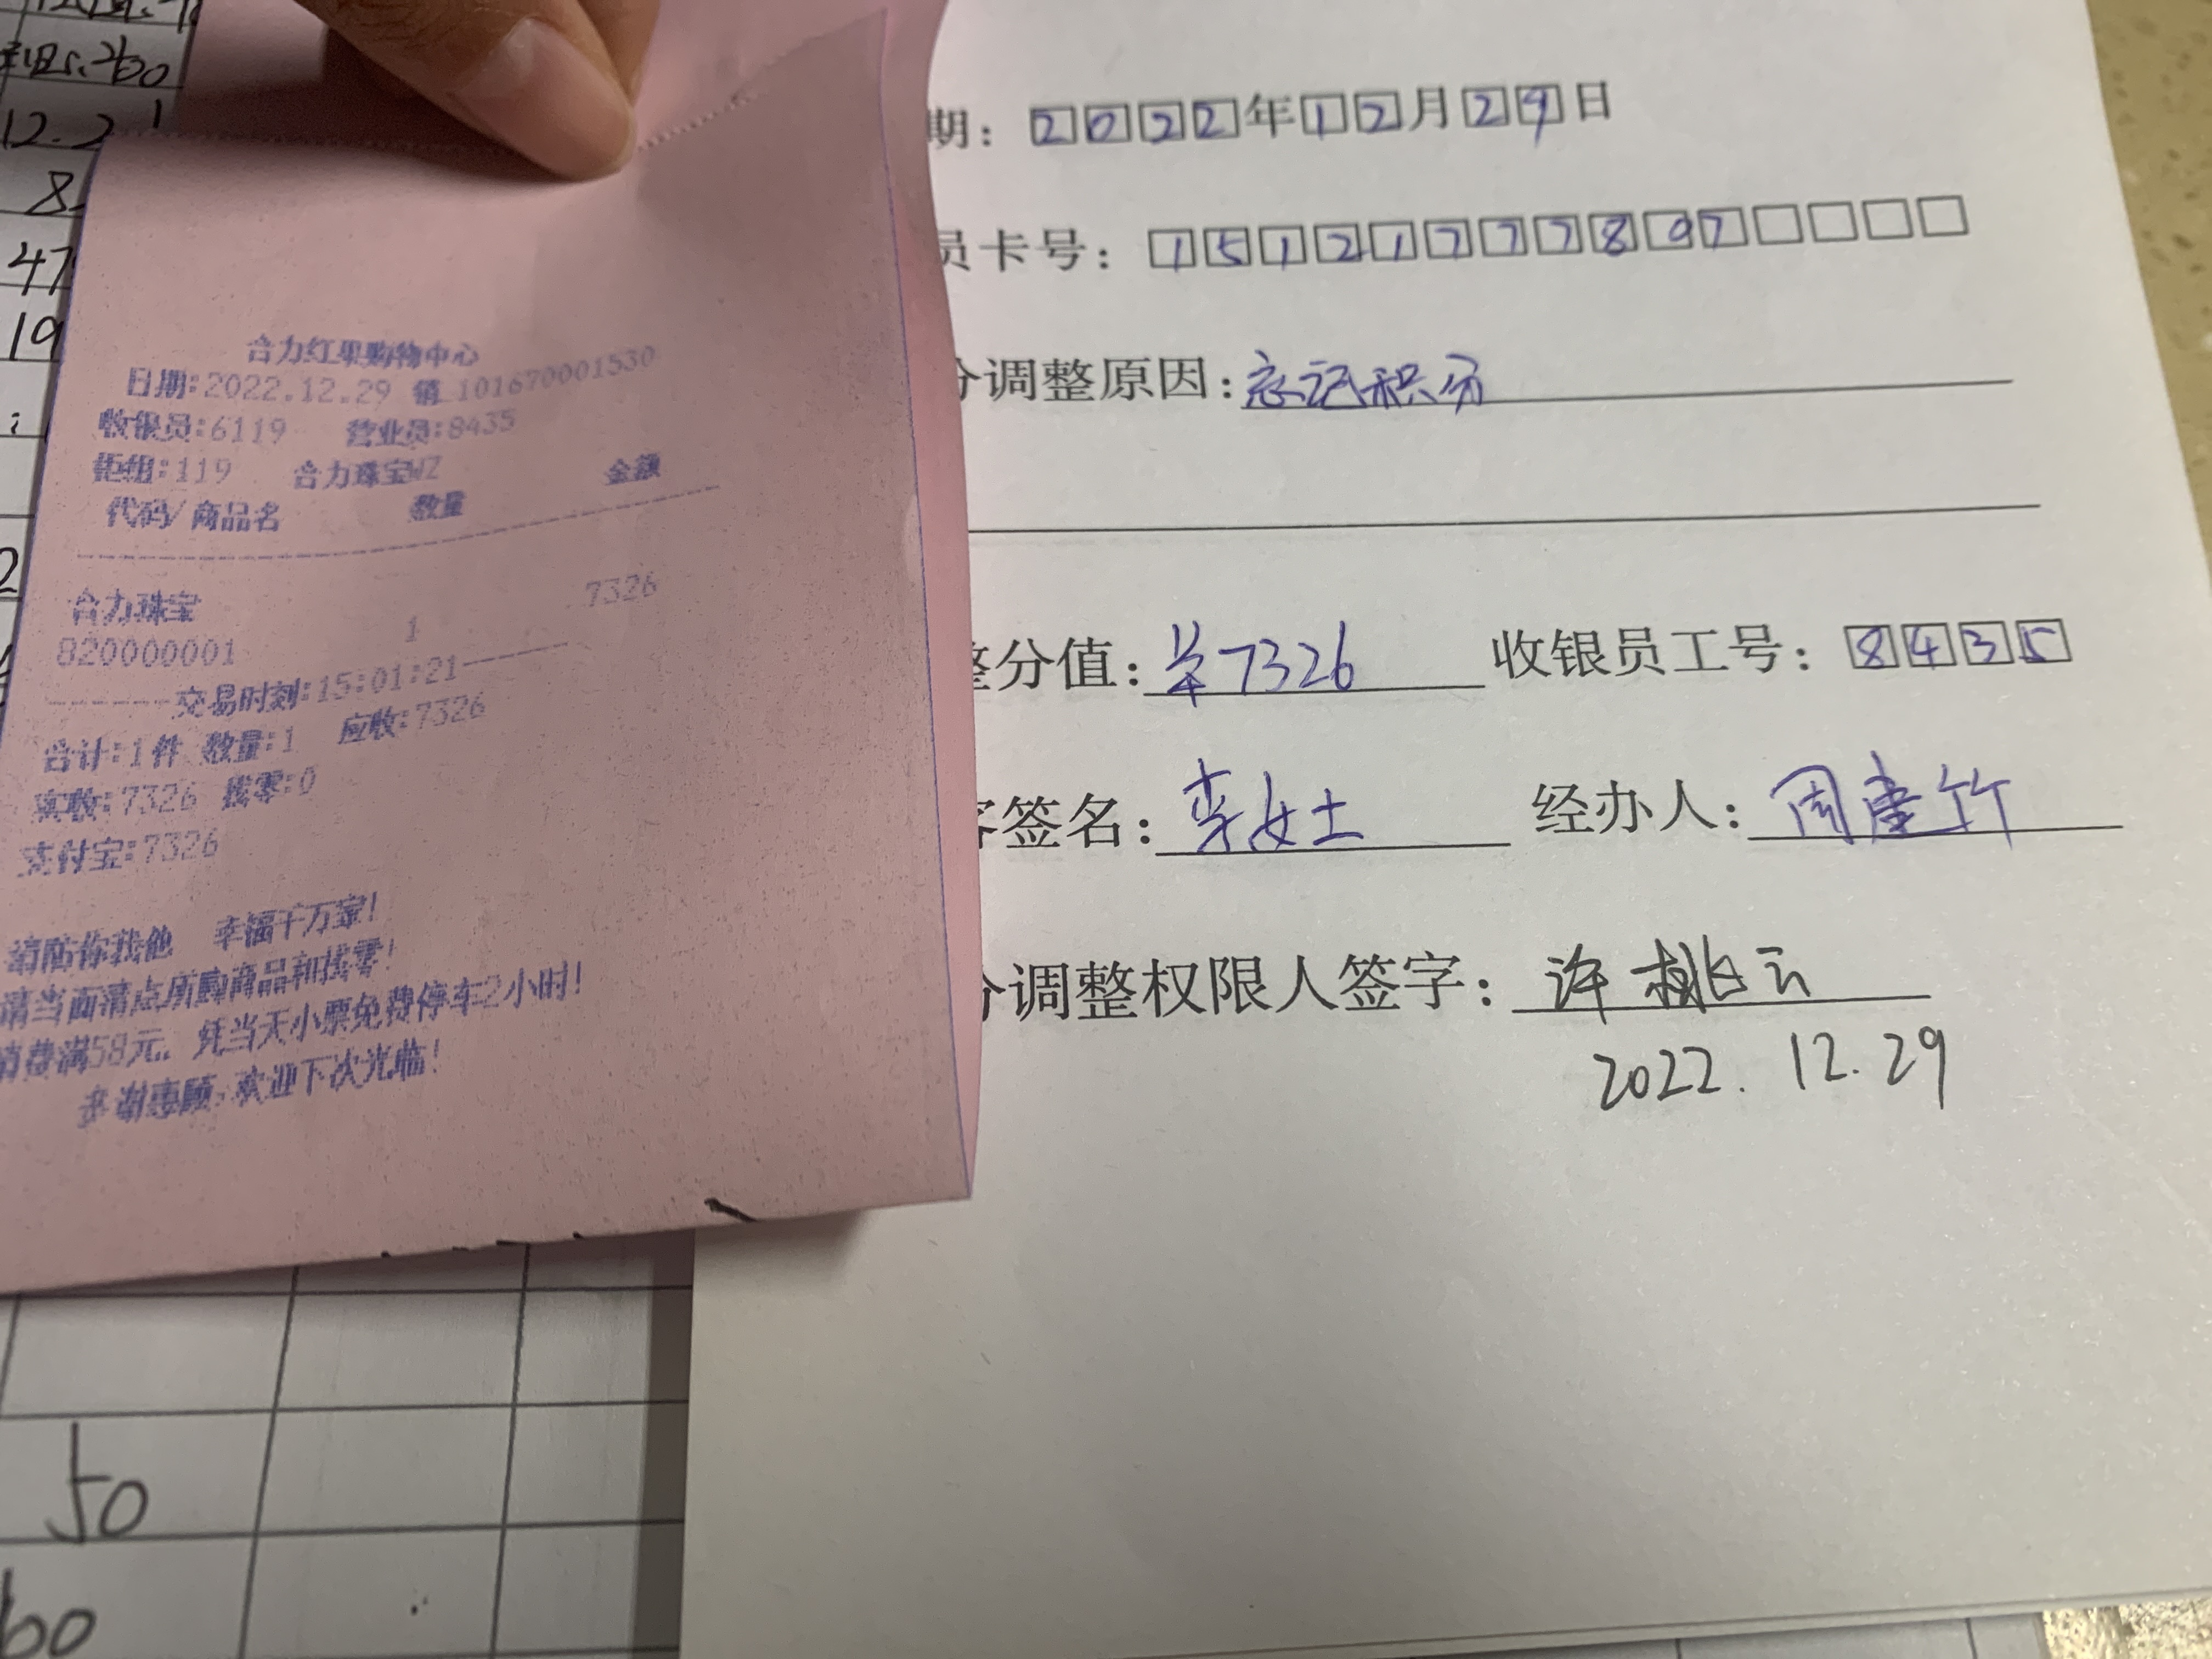 合力红果购物中心
日期:2022.12.29 销 101670001530
收银员:6119 营业员:8435
柜组:119 合力珠宝WZ
代码/商品名 数量 金额
合力珠宝
820000001 1 7326
交易时刻:15:01:21
合计:1件 数量:1 应收:7326
实收:7326 找零:0
支付宝:7326
消防你我他 幸福千万家!
请当面清点所购商品和找零!
消费满58元, 凭当天小票免费停车2小时!
多谢惠顾,欢迎下次光临!
期: 2022年12月29日
员卡号: 15121777897
分调整原因: 忘记积分
整分值: 7326 收银员工号: 8435
客签名: 李女士 经办人: 周唐竹
分调整权限人签字: 许桃云
2022.12.29
12.2
8
47
19
50
60